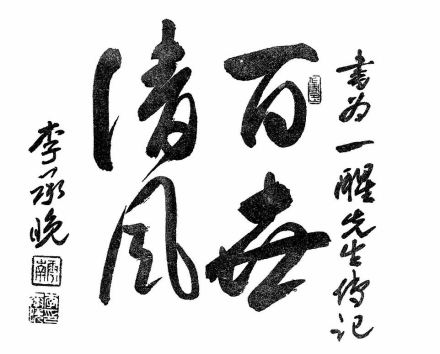 書為一醒先生傳記
百世
清風
李承晚